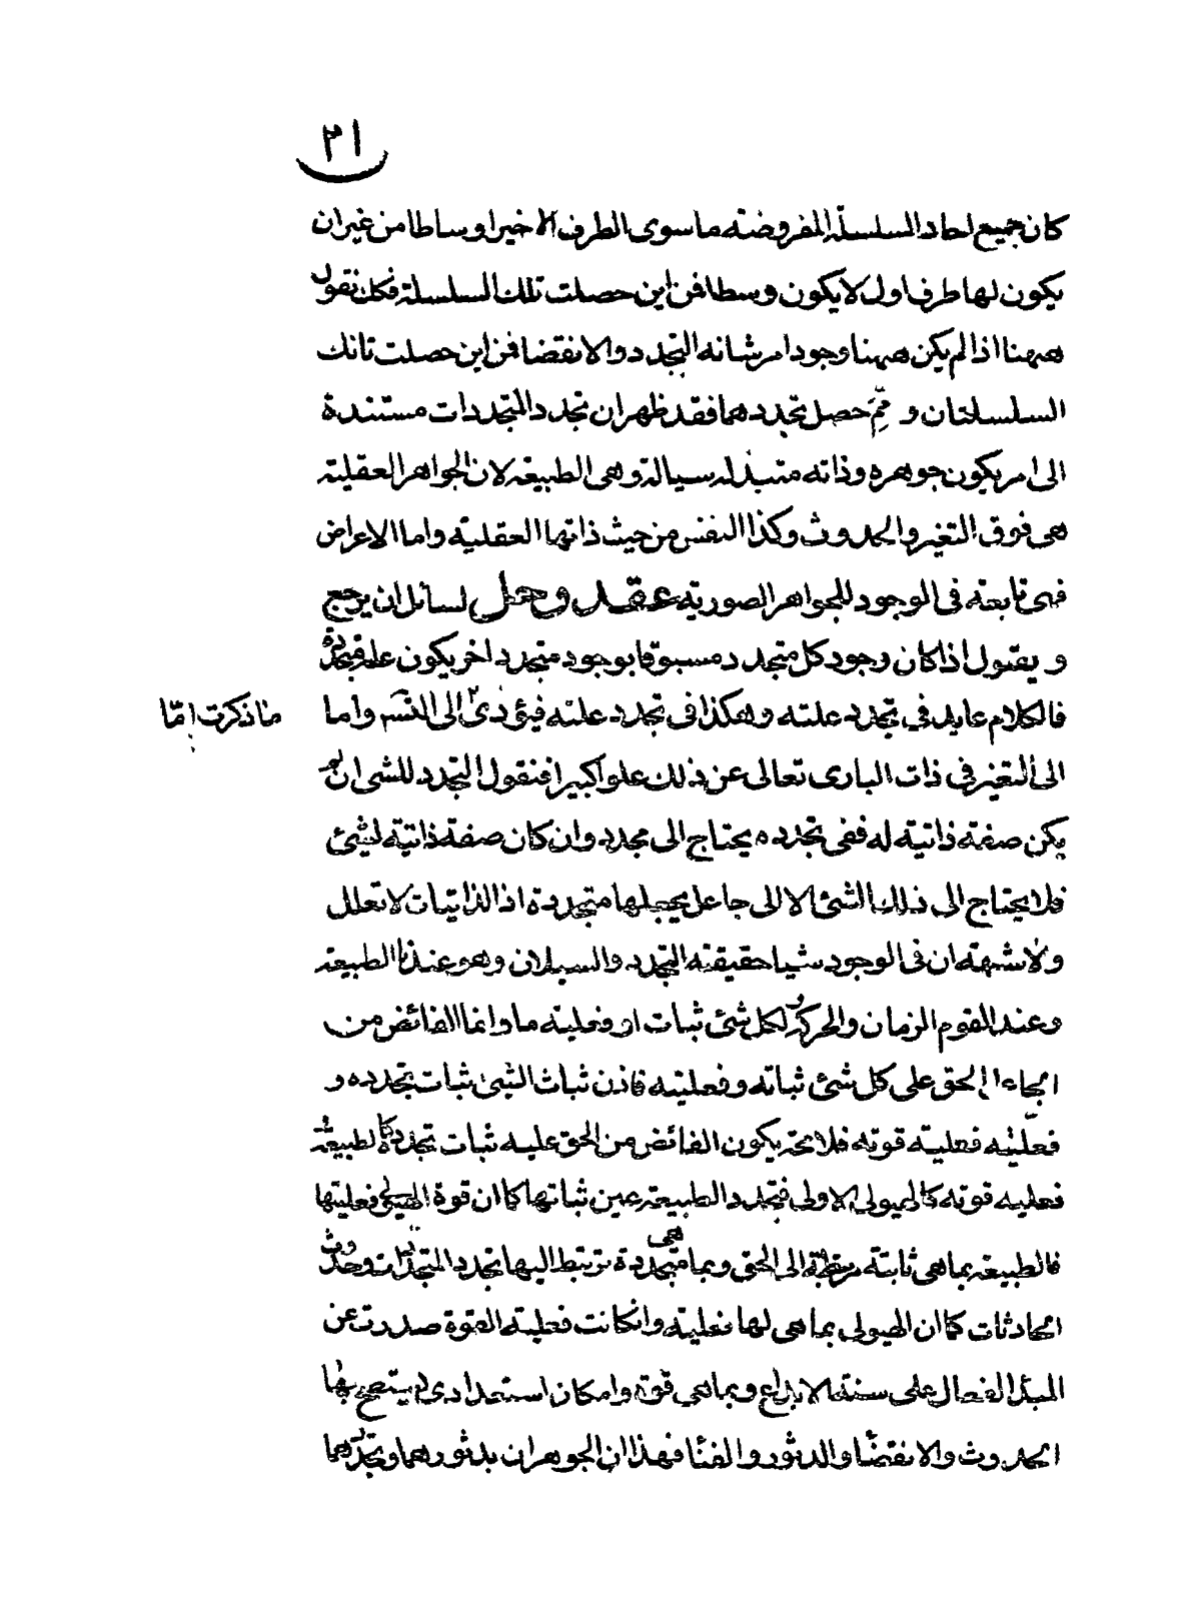 ٢١
كان جميع احاد السلسلة المفروضه ما سوى الطرف الاخير اوساطا من غير ان
يكون لها طرف اول لا يكون وسطا فمن اين حصلت تلك السلسلة فكك نقول
ههنا اذا لم يكن ههنا وجود امر شانه التجدد والانقضا فمن اين حصلت تانك
السلسلتان و ممّ حصل تجددهما فقد ظهر ان تجدد المتجددات مستندة
الى امر يكون جوهره وذاته متبدله سيالة وهى الطبيعه لان الجواهر العقليه
هى فوق التغير والحدوث وكذا النفس من حيث ذاتها العقليه واما الاعراض
فهى تابعه فى الوجود للجواهر الصورية عقد وحل لسائل ان يرجع
و يقول اذا كان وجود كل متجدد مسبوقا بوجود متجدد اخر يكون علة تجدده
فالكلام عايد فى تجدد علته وهكذا فى تجدد علته فيؤدى الى التسه واما
ما ذكرت امّا
الى التغير فى ذات البارى تعالى عن ذلك علوا كبيرا فنقول التجدد للشى ان لم
يكن صفة ذاتية له ففى تجدده يحتاج الى مجدد وان كان صفة ذاتية لشئ
فلا يحتاج الى ذلك الشئ الا الى جاعل يجعلها متجددة اذ الذاتيات لا تعلل
ولا شبهة ان فى الوجود شيا حقيقته التجدد والسيلان وهو عندنا الطبيعه
وعند القوم الزمان والحركة ولكل شئ ثبات او فعلية ما وانما الفائض من
الجاعل الحق على كل شئ ثباته وفعليته فاذن ثبات الشئ ثبات تجدده و
فعليّته فعلية قوته فلا محة يكون الفائض من الحق عليه ثبات تجدده كالطبيعة
فعليه قوته كالهيولى الاولى فتجدد الطبيعة عين ثباتها كما ان قوة الهيولى فعليتها
فالطبيعه بما هى ثابتة مرتبطة الى الحق وبما هى متجددة ترتبط اليها تجدد المتجددات وحدوث
الحادثات كما ان الهيولى بما هى لها فعلية وانكانت فعلية القوة صدرت عن
المبدا الفعال على سنة الابداع وبما هى قوة وامكان استعدادى يستصح بها
الحدوث والانقضا والدثور والفنا فهذا ان الجوهران بدثورهما وتجددهما